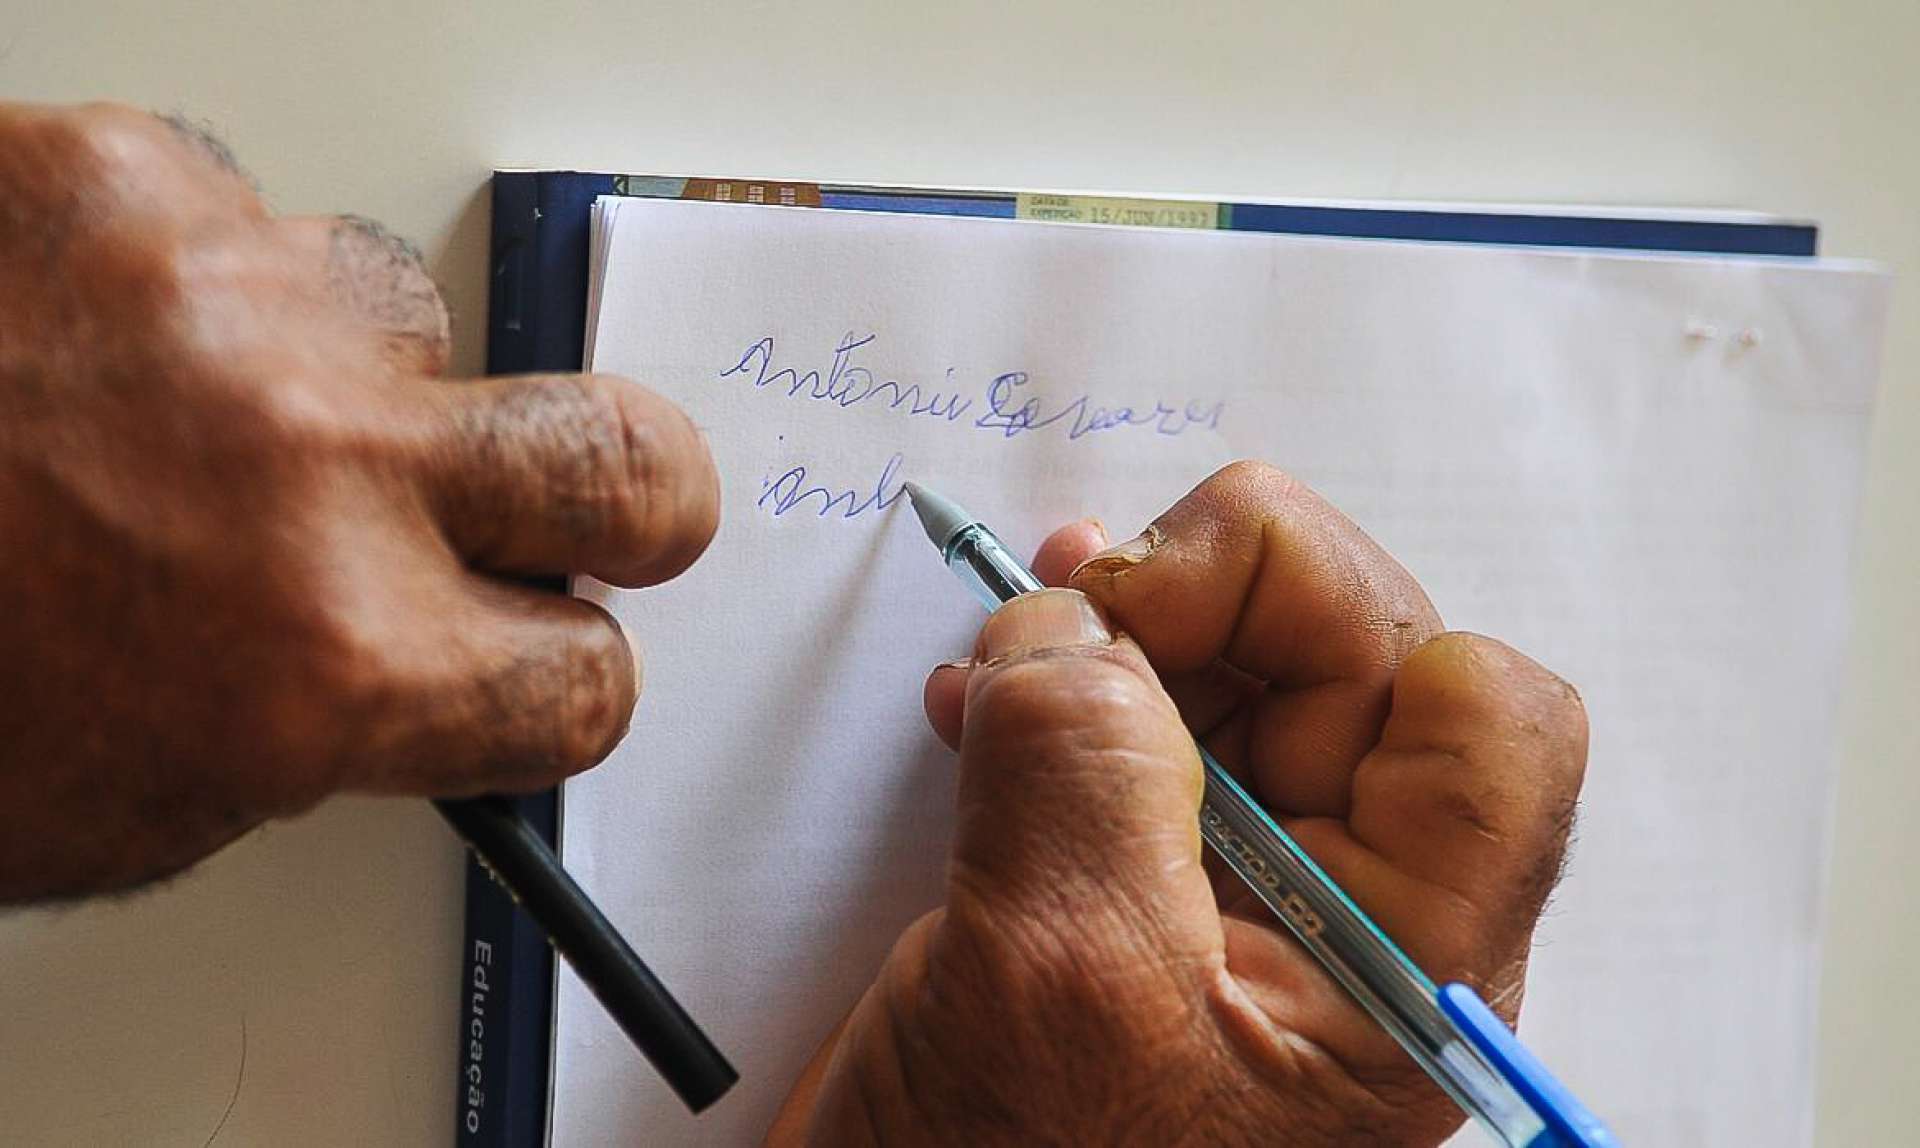 DATA DE
EXPEDIÇÃO 15/JUN/1992
Antonio
Ant
Educação